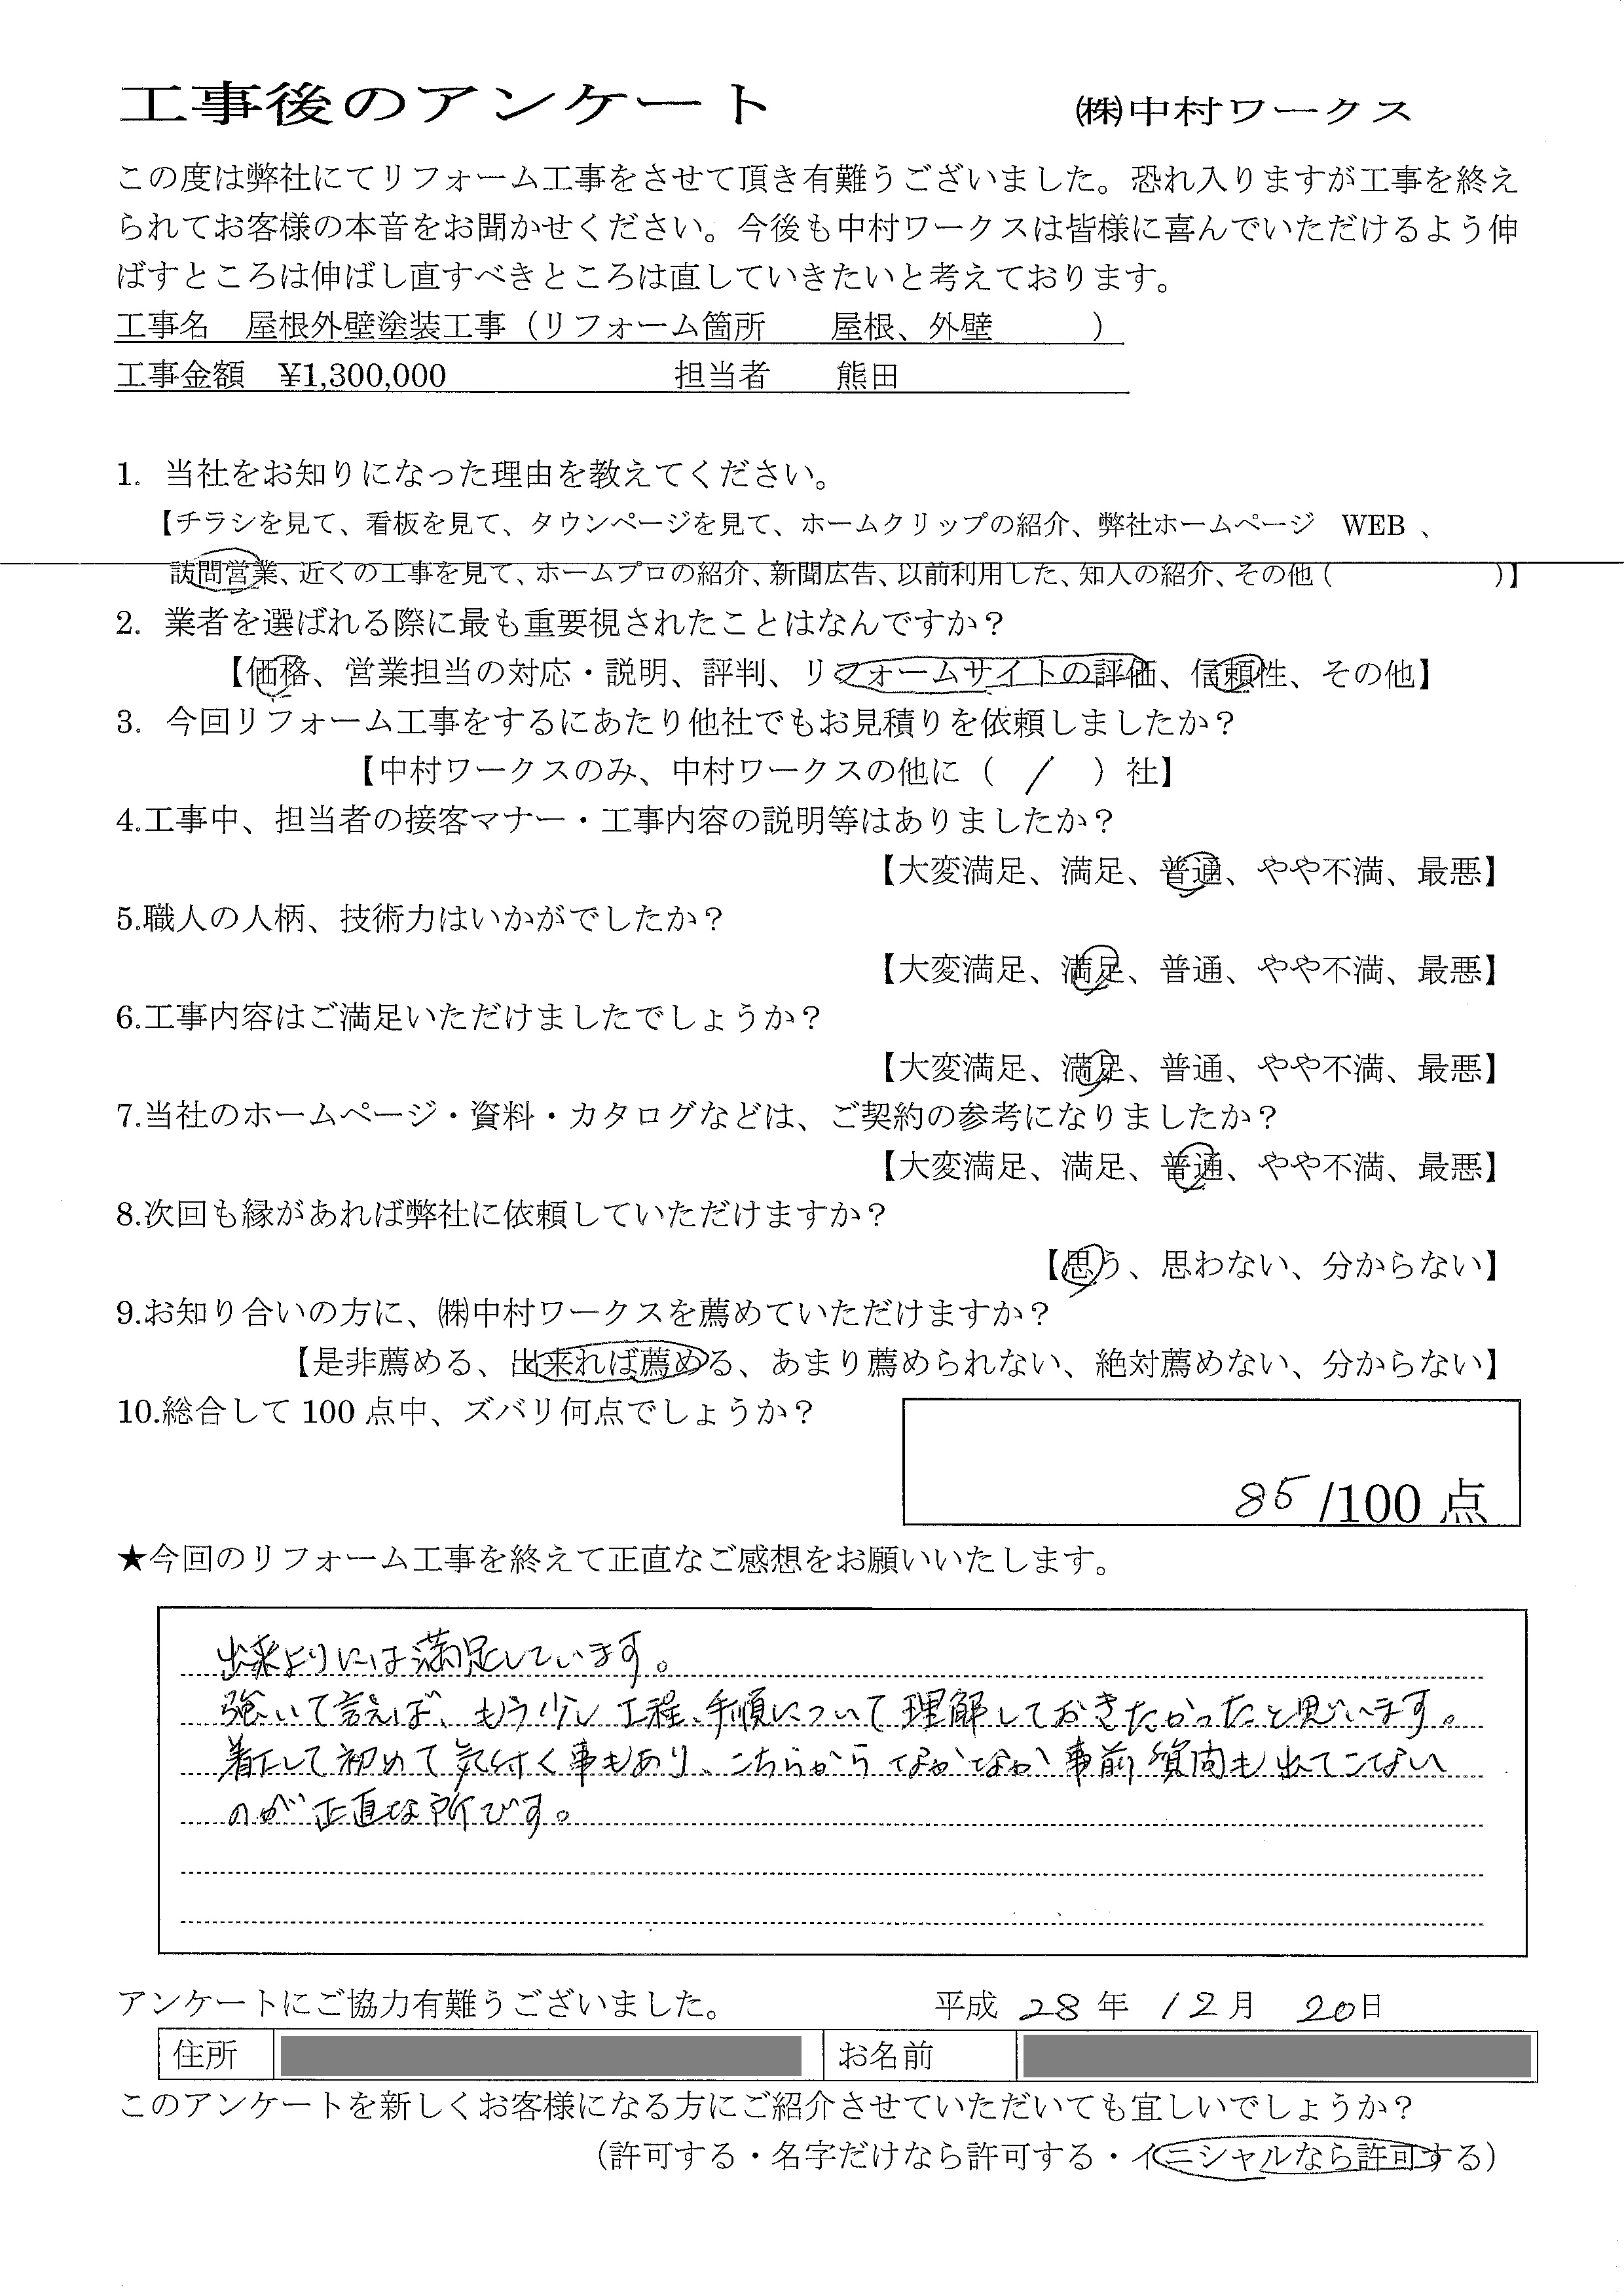 工事後のアンケート ㈱中村ワークス
この度は弊社にてリフォーム工事をさせて頂き有難うございました。恐れ入りますが工事を終え
られてお客様の本音をお聞かせください。今後も中村ワークスは皆様に喜んでいただけるよう伸
ばすところは伸ばし直すべきところは直していきたいと考えております。
工事名 屋根外壁塗装工事(リフォーム箇所 屋根、外壁 )
工事金額 ¥1,300,000 担当者 熊田
1. 当社をお知りになった理由を教えてください。
【チラシを見て、看板を見て、タウンページを見て、ホームクリップの紹介、弊社ホームページ WEB 、
訪問営業、近くの工事を見て、ホームプロの紹介、新聞広告、以前利用した、知人の紹介、その他( )】
2. 業者を選ばれる際に最も重要視されたことはなんですか?
【価格、営業担当の対応・説明、評判、リフォームサイトの評価、信頼性、その他】
3. 今回リフォーム工事をするにあたり他社でもお見積りを依頼しましたか?
【中村ワークスのみ、中村ワークスの他に( / )社】
4.工事中、担当者の接客マナー・工事内容の説明等はありましたか?
【大変満足、満足、普通、やや不満、最悪】
5.職人の人柄、技術力はいかがでしたか?
【大変満足、満足、普通、やや不満、最悪】
6.工事内容はご満足いただけましたでしょうか?
【大変満足、満足、普通、やや不満、最悪】
7.当社のホームページ・資料・カタログなどは、ご契約の参考になりましたか?
【大変満足、満足、普通、やや不満、最悪】
8.次回も縁があれば弊社に依頼していただけますか?
【思う、思わない、分からない】
9.お知り合いの方に、㈱中村ワークスを薦めていただけますか?
【是非薦める、出来れば薦める、あまり薦められない、絶対薦めない、分からない】
10.総合して 100 点中、ズバリ何点でしょうか?
85 /100 点
★今回のリフォーム工事を終えて正直なご感想をお願いいたします。
出来よりには満足しています。
強いて言えば、もう少し工程、手順について理解しておきたかったと思います。
着工して初めて気付く事もあり、こちらからなかなか事前質問も出てこない
のが正直な所です。
アンケートにご協力有難うございました。 平成 28 年 12 月 20 日
住所 お名前
このアンケートを新しくお客様になる方にご紹介させていただいても宜しいでしょうか?
(許可する・名字だけなら許可する・イニシャルなら許可する)